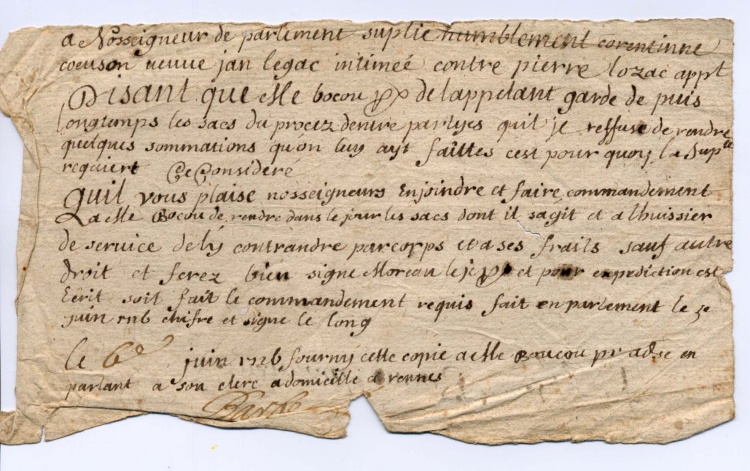 a Nosseigneur de parlement suplie humblement corentinne
coeuson veuve jan legac intimeé contre pierre lozac appt
Disant que elle bocou de lappelant garde de puis
longtemps les sacs du procez dentre partyes quil je reffuse de rendre
quelques sommations quon luy ayt faittes cest pour quoy la Supte
requiert Ce Consideré
Quil vous plaise nosseigneurs Enjoindre et faire commandement
a elle Bocou de rendre dans le jour les sacs dont il sagit et a lhuissier
de service de ly contrandre par corps et a ses frails sauf autre
droit et ferez bien signe Moreau le je et pour expediction est
Ecrit soit fait le commandement requis fait en parlement le 5e
juin chifre et signe le long
le 6e juin fourny cette copie a elle Boucou pr adse en
parlant a son clerc a domicille a rennes